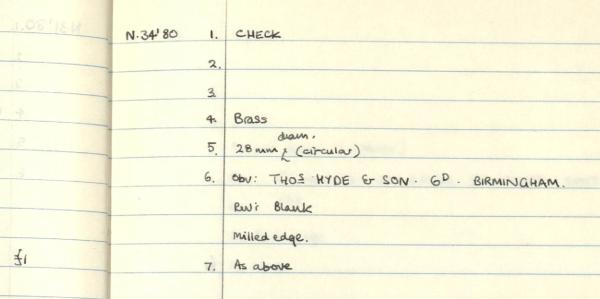 N.34'80 1. CHECK
2.
3
4. Brass
5. 28mm diam. (circular)
6. Obv: THOS HYDE & SON. 6D. BIRMINGHAM.
Rev: Blank
Milled edge.
£1 7. As above